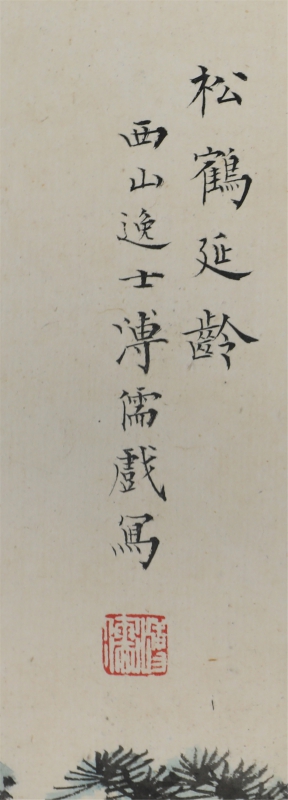 松鶴延齡
西山逸士溥儒戲寫
溥儒